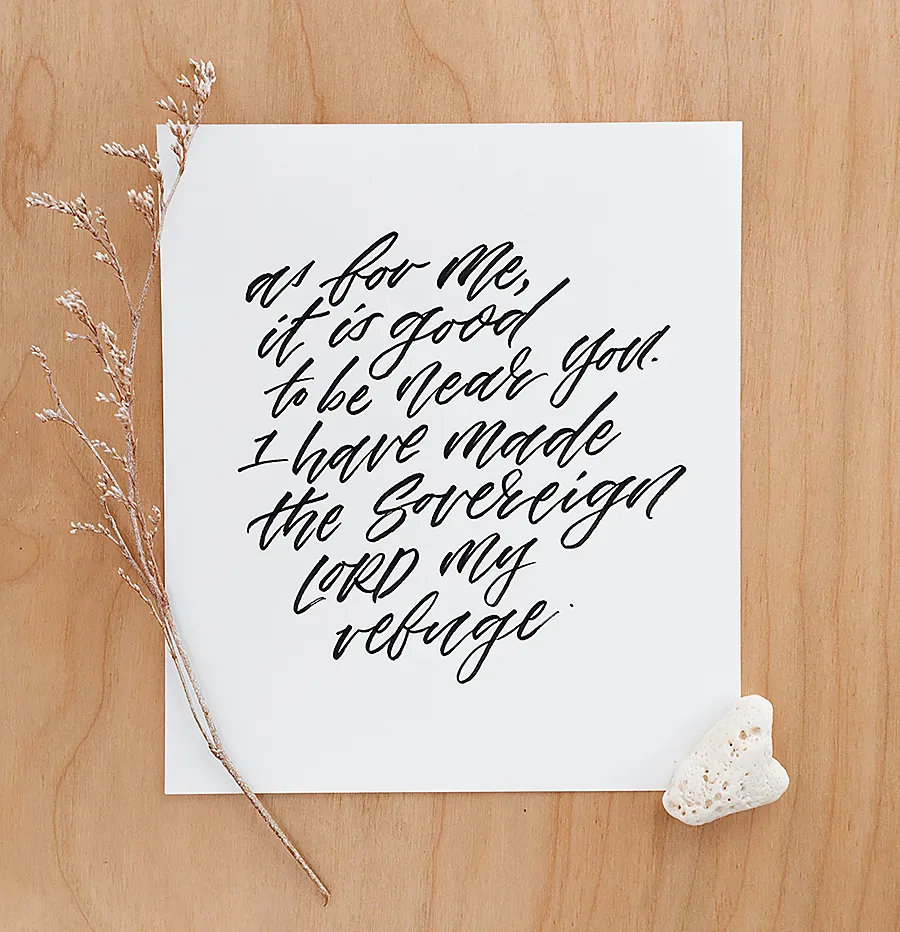 as for me,
it is good
to be near you.
I have made
the Sovereign
LORD my
refuge.